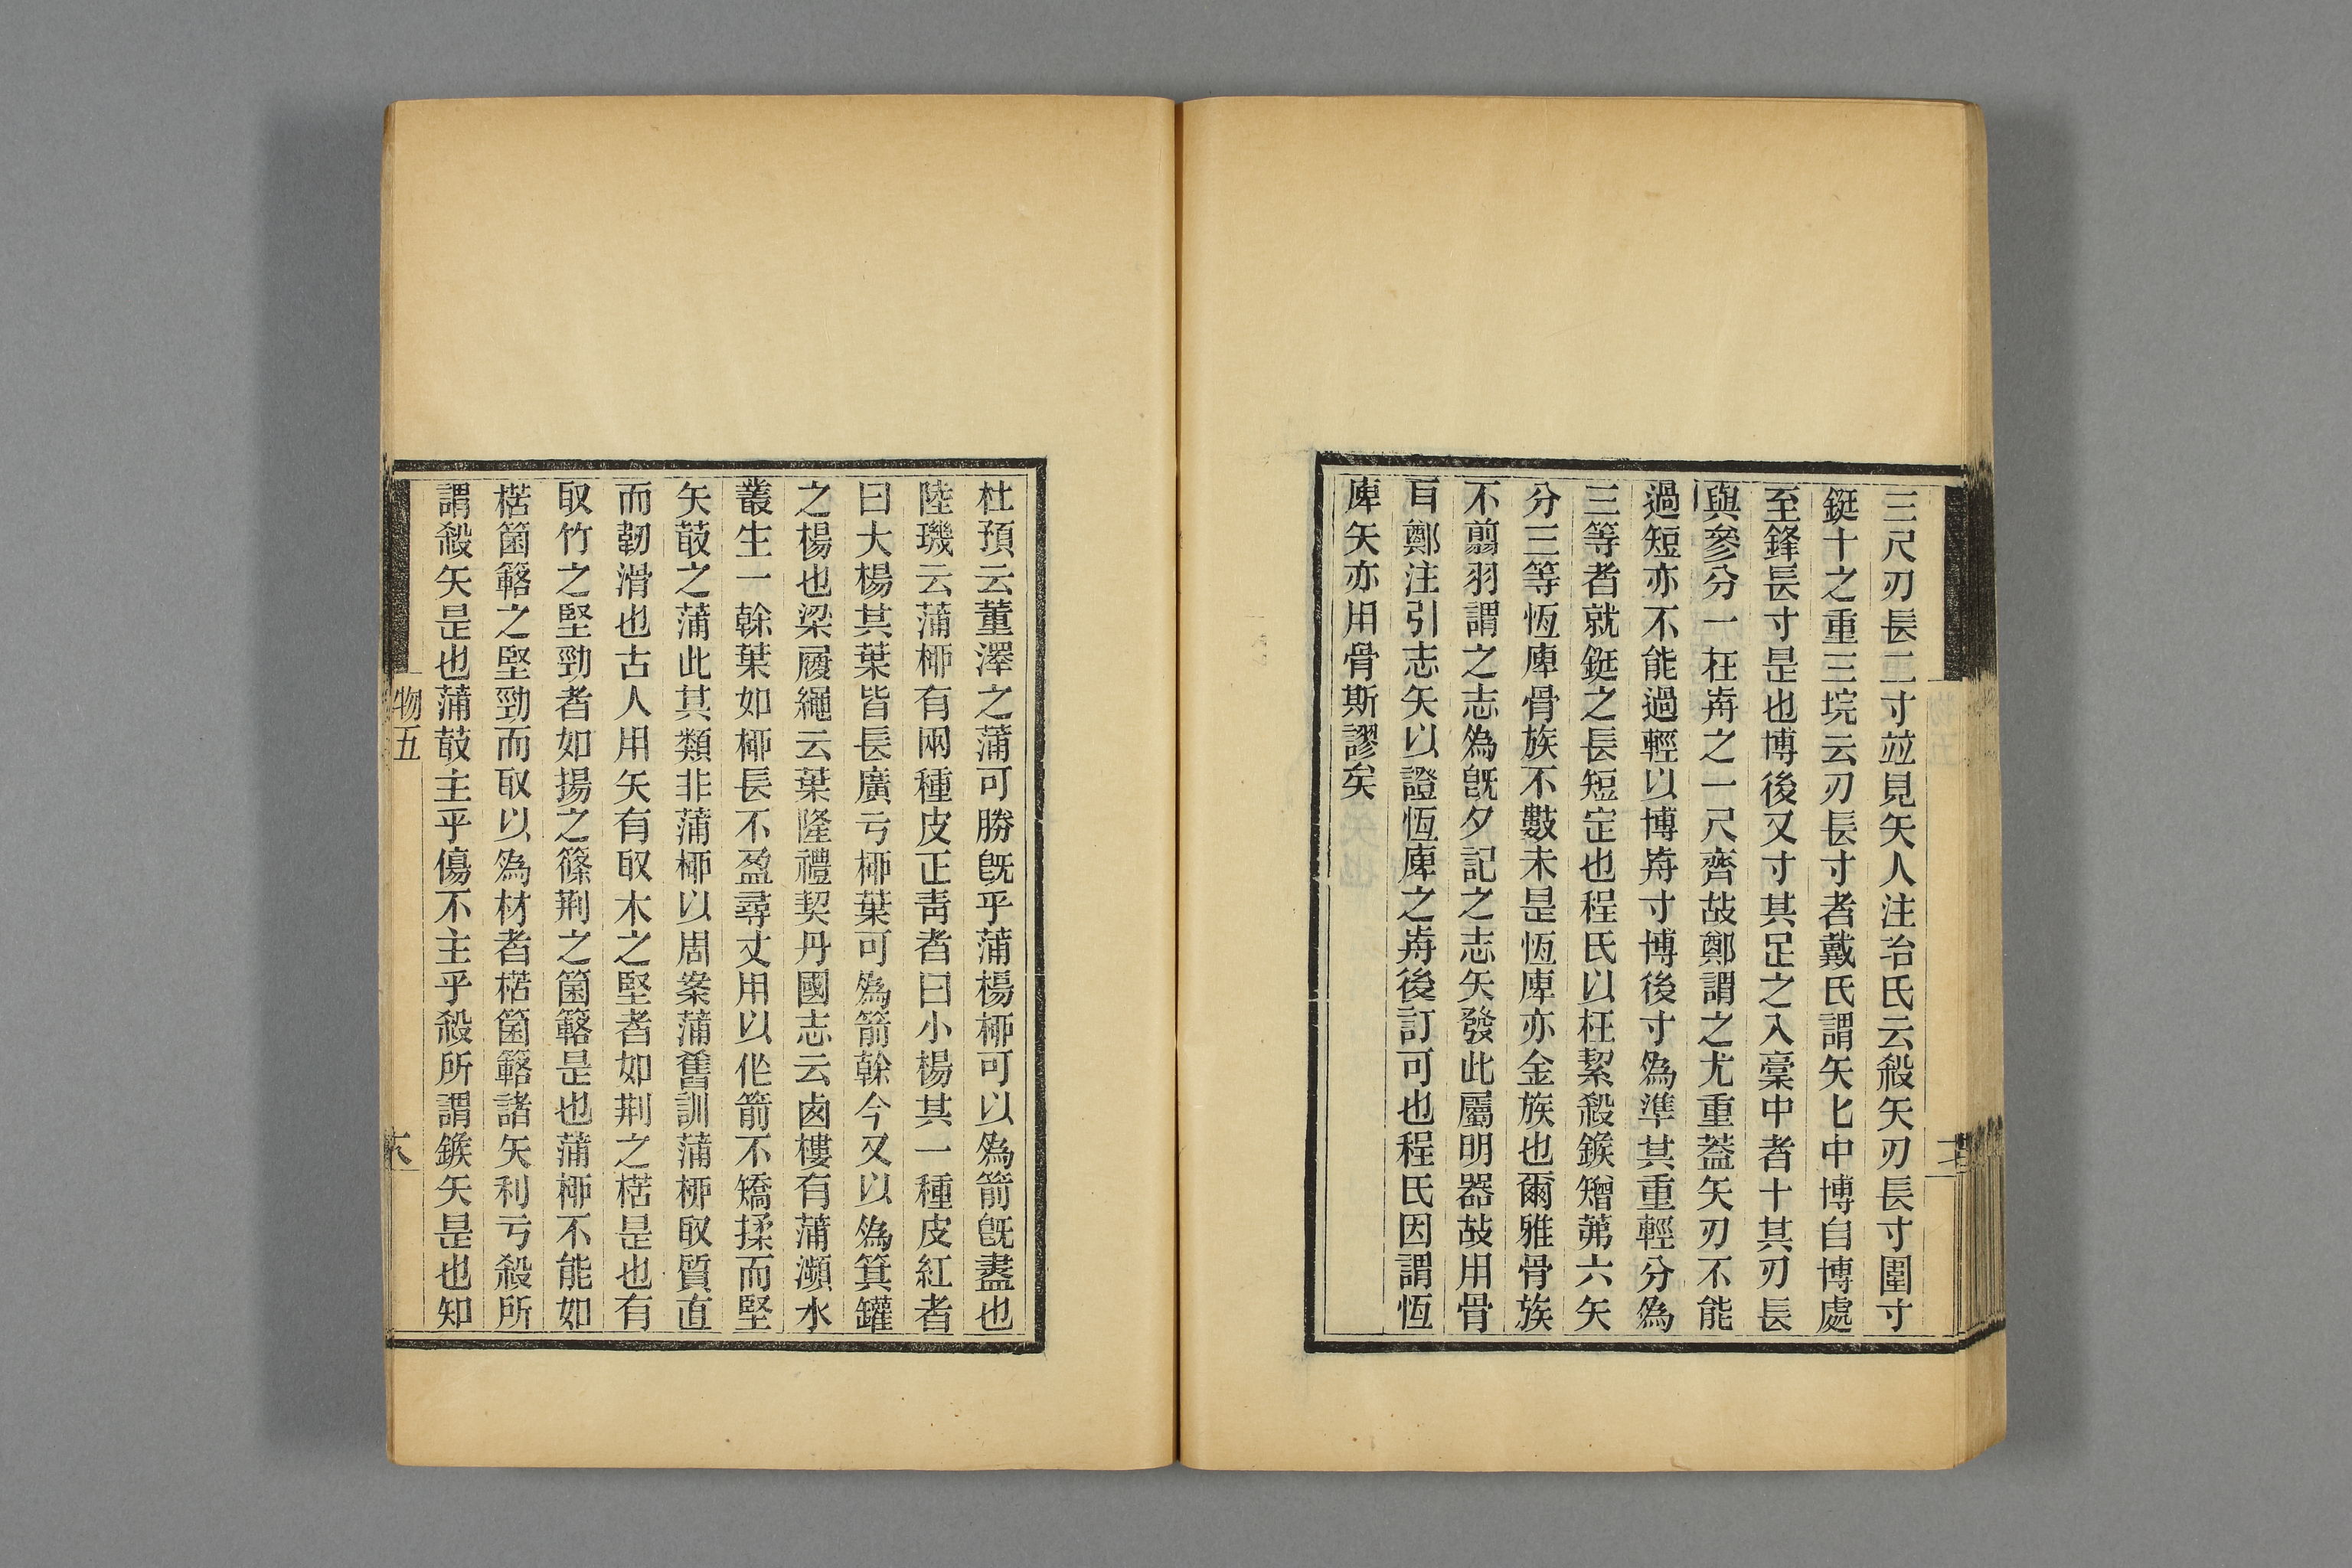 三尺刃長二寸竝見矢人注冶氏云殺矢刃長寸圍寸
鋌十之重三垸云刃長寸者戴氏謂矢匕中博自博處
至鋒長寸是也博後又寸其足之入稾中者十其刃長
與參分一在歬之一尺齊故鄭謂之尤重蓋矢刃不能
過短亦不能過輕以博歬寸博後寸為準其重輕分為
三等者就鋌之長短定也程氏以枉絜殺鍭矰茀六矢
分三等恆庳骨族不數未是恆庳亦金族也爾雅骨族
不翦羽謂之志為旣夕記之志矢發此屬明器故用骨
𦣹鄭注引志矢以證恆庳之歬後訂可也程氏因謂恆
庳矢亦用骨斯謬矣
杜預云董澤之蒲可勝旣乎蒲楊桺可以為箭旣盡也
陸璣云蒲桺有兩種皮正靑者曰小楊其一種皮紅者
曰大楊其葉皆長廣亏桺葉可為箭榦今又以為箕罐
之楊也梁履繩云葉隆禮契丹國志云鹵樓有蒲瀕水
叢生一榦葉如桺長不盈尋丈用以作箭不矯揉而堅
矢菆之蒲此其類非蒲桺以周案蒲舊訓蒲桺取質直
而韌滑也古人用矢有取木之堅者如荆之楛是也有
取竹之堅勁者如揚之篠荆之箘簵是也蒲桺不能如
楛箘簵之堅勁而取以為材者楛箘簵諸矢利亏殺所
謂殺矢是也蒲菆主乎傷不主乎殺所謂鍭矢是也知
物五